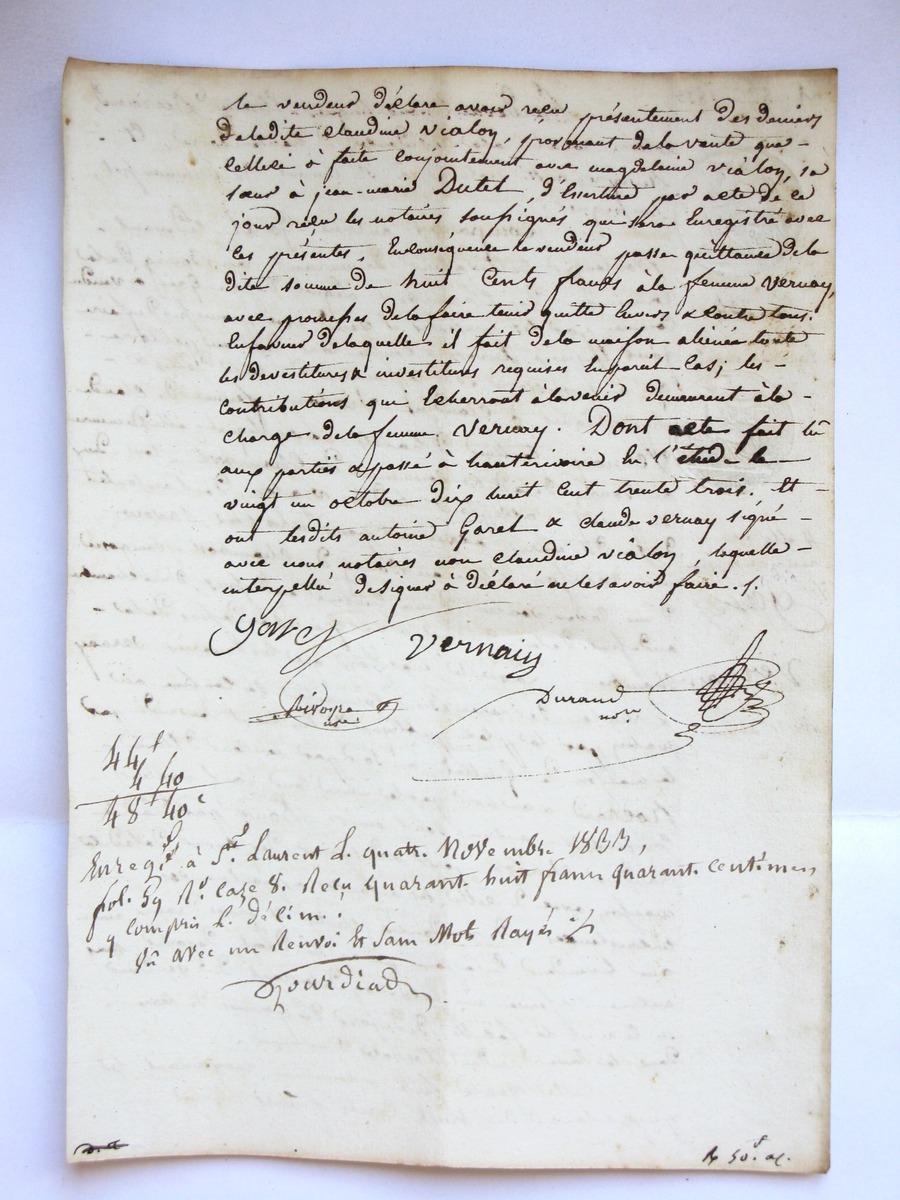 le vendeur déclare avoir reçu présentement des deniers
de ladite claudine vialon, provenant de la vente que -
celleci à faite conjointement avec magdelaine vialon, sa
sœur à jean-marie Dutel d'Essertine par acte de ce
jour reçu les notaires soussignés qui sera Enregistré avec
les présentes, Enconséquence le vendeur passe quittance de la
dite somme de huit Cents francs à la femme Vernay,
avec promesse de la faire tenir quitte Envers & contre tous.
Enfaveur de laquelle il fait de la maison aliénée toute
les devestitures & investitures requises En pareil Cas; les -
Contributions qui Echerront à lavenir demeurent à la -
charge de la femme Vernay. Dont acte fait lu
aux parties & passé à hauterivoire En l'étude le
vingt un octobre dix huit cent trente trois. Et -
ont lesdits antoine Garel & claude vernay signé -
avec nous notaires non claudine vialon, laquelle -
interpellée de signer à déclaré ne le savoir faire ./.
Vernain
Durand
nore
44 f
4 40
48 40 c
Enregé à St. Laurent le quatre Novembre 1833,
fol. 59 Ro. Case 8. Reçu quarante huit francs quarante centimes
y compris le décime.
avec un Renvoi Et sans Mots Rayés